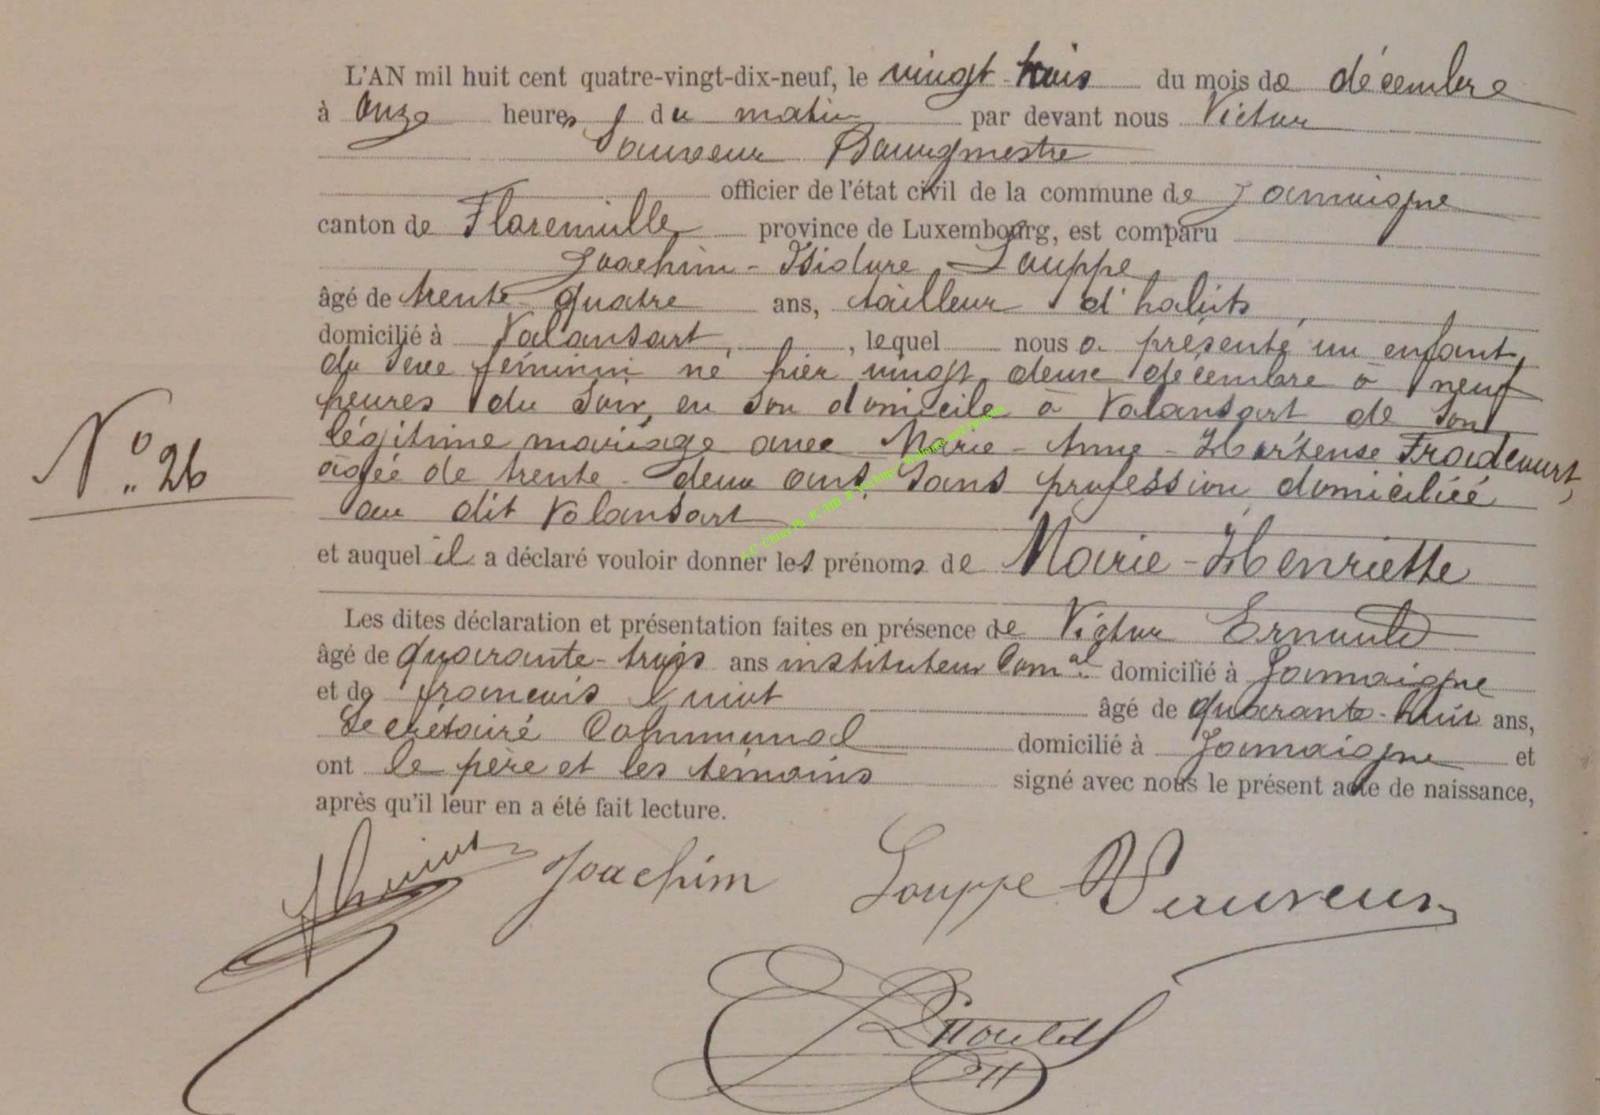 L'AN mil huit cent quatre-vingt-dix-neuf, le vingt-trois du mois de décembre
à onze heures du matin par devant nous Victor
Sauveur Bourgmestre
officier de l'état civil de la commune de Jamoigne
canton de Florenville province de Luxembourg, est comparu
Joachim-Isidore Louppe
âgé de trente-quatre ans, tailleur d'habits,
domicilié à Valansart, , lequel nous a présenté un enfant
du sexe féminin né hier vingt deux décembre à neuf
heures du soir, en son domicile à Valansart de son
légitime mariage avec Marie-Anne-Hortense Froidcourt,
N° 26
agée de trente-deux ans, sans profession domiciliée
au dit Valansart
et auquel il a déclaré vouloir donner les prénoms de Marie-Henriette
Les dites déclaration et présentation faites en présence de Victor
âgé de quarante-trois ans instituteur Comal domicilié à Jamoigne
et de françois âgé de quarante-huit ans,
Secrétaire Communal domicilié à Jamoigne et
ont le père et les témoins signé avec nous le présent acte de naissance,
après qu'il leur en a été fait lecture.
Joachim Louppe Sauveur